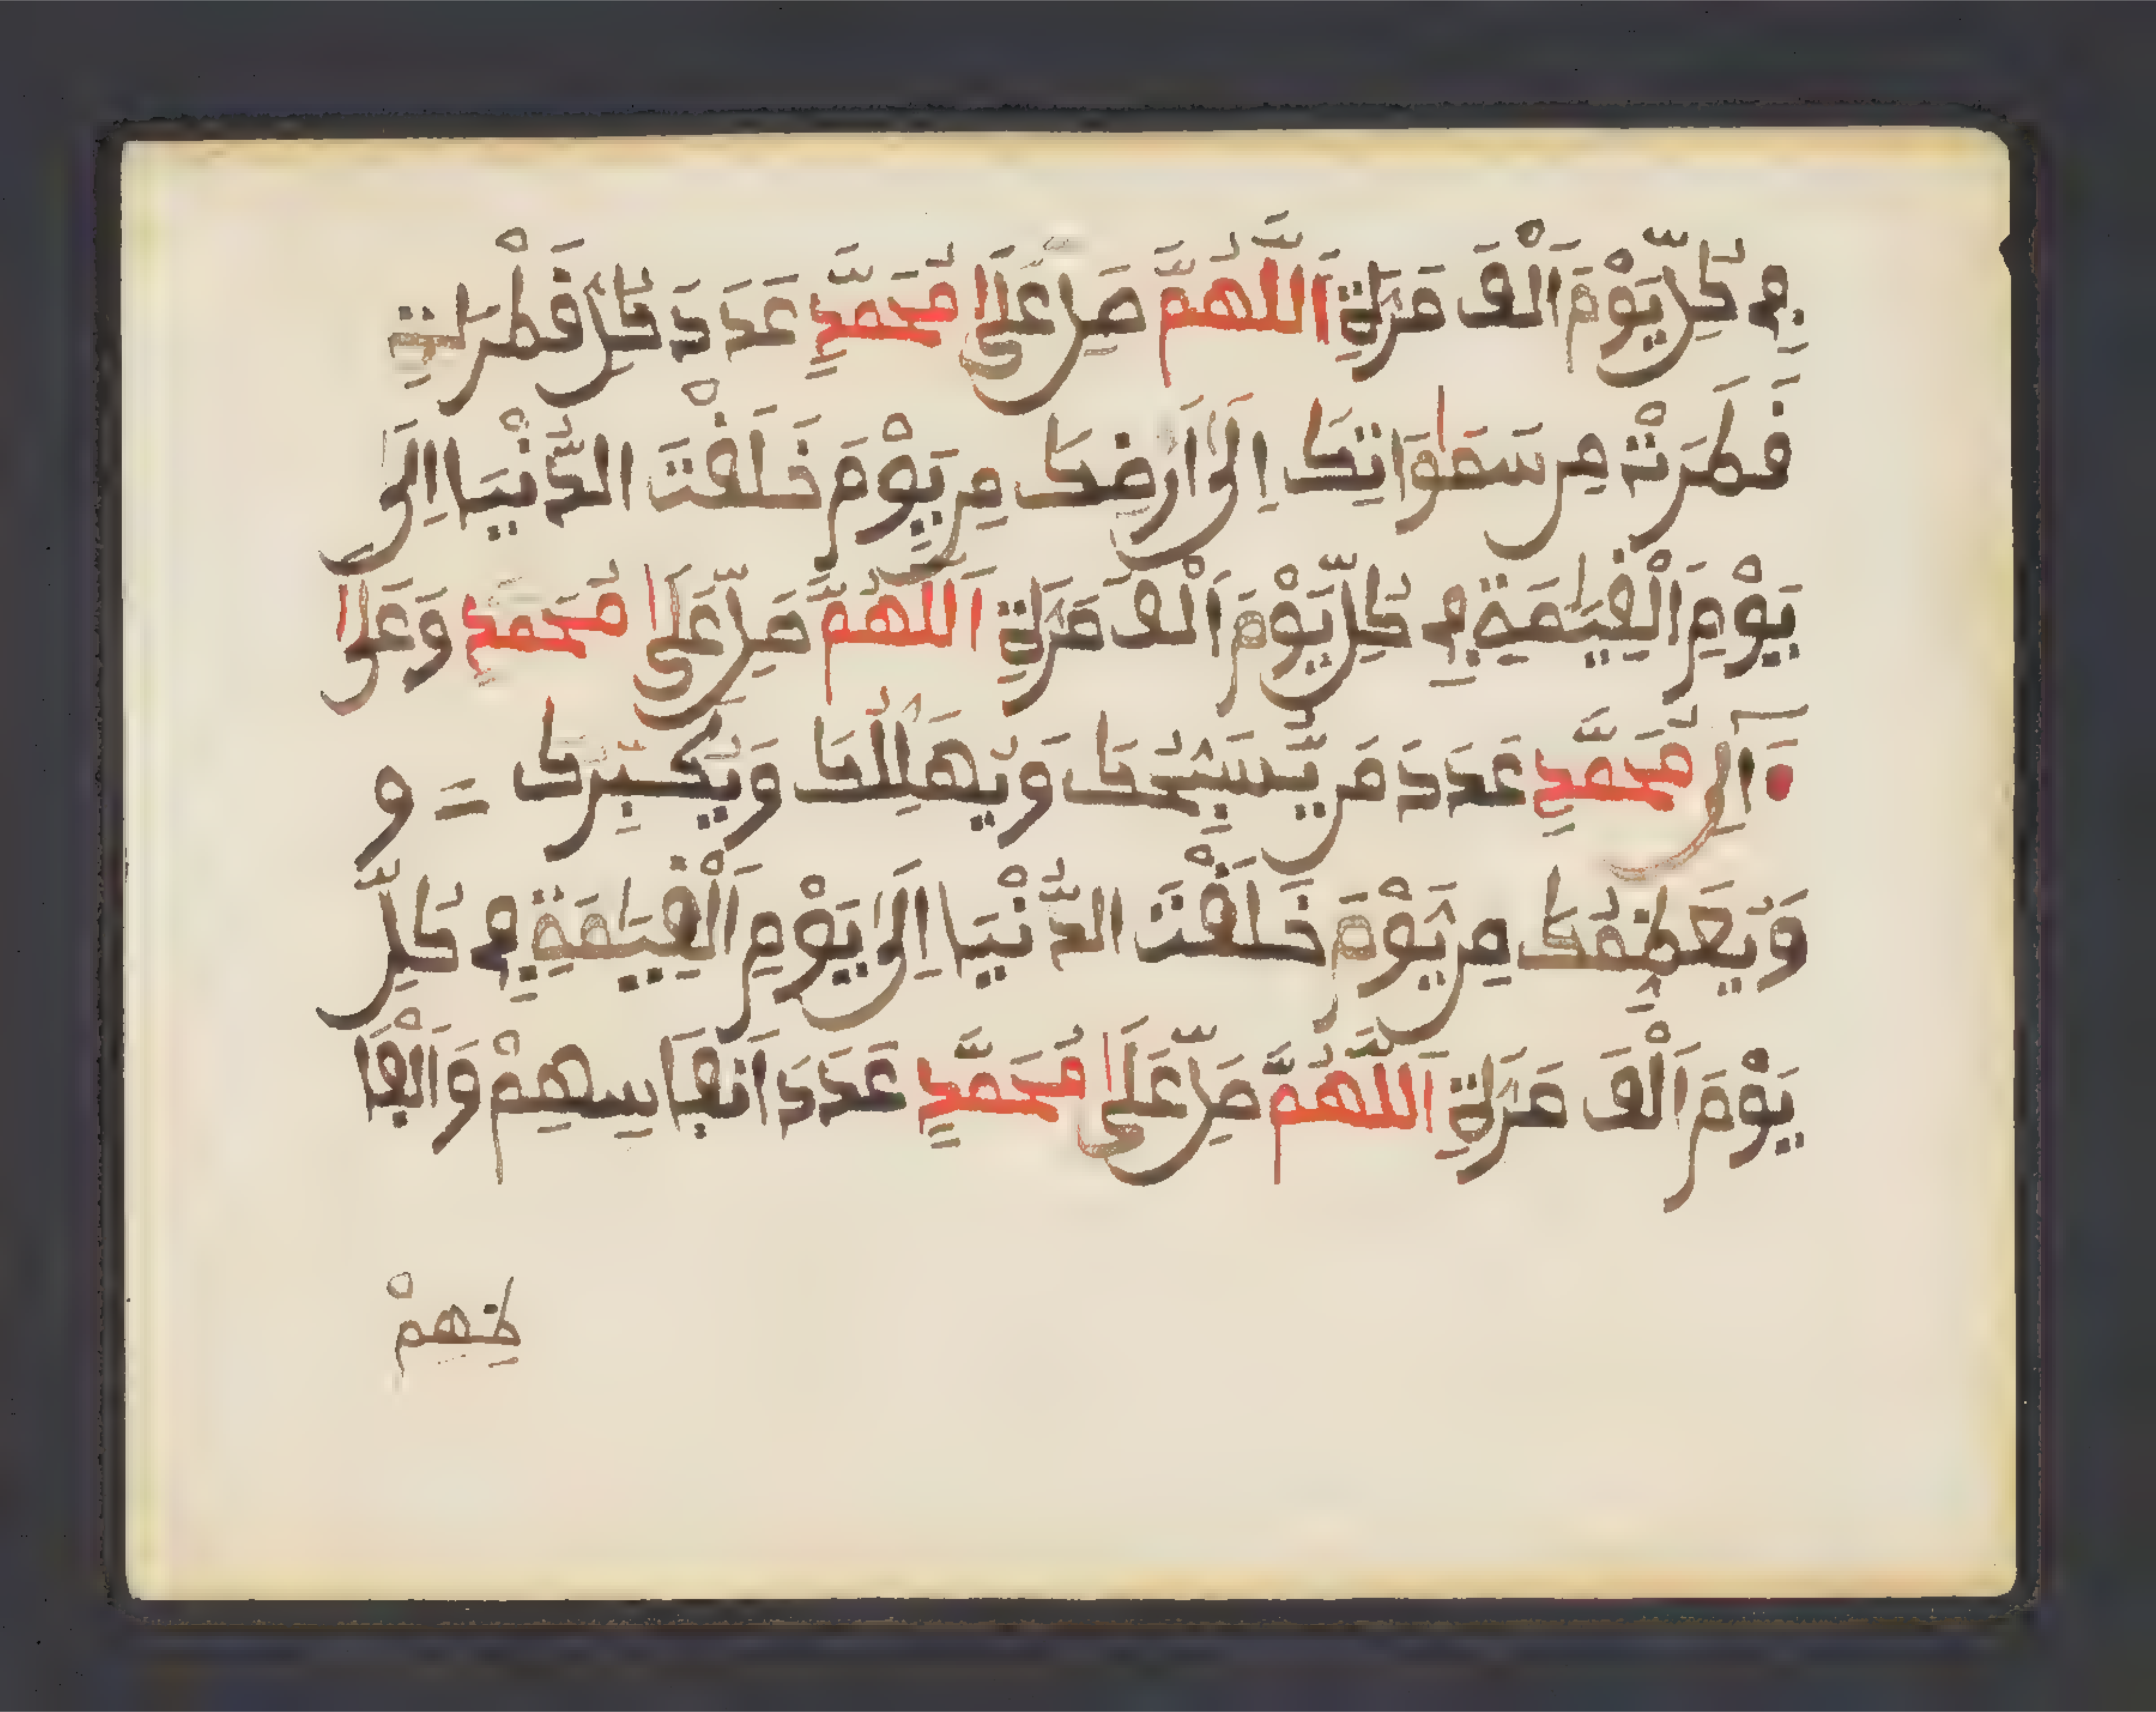 فِي كُلِّ يَوْمٍ أَلْفَ مَرَّةٍ اَللَّهُمَّ صَلِّ عَلَى مُحَمَّدٍ عَدَدَ كُلِّ قَطْرَةٍ
قَطَرَتْ مِن سَمَوَاتِكَ اِلَى اَرْضِكَ مِن يَوْمَ خَلَقْتَ الدُّنْيَا اِلَى
يَوْمِ اَلْقِيَمَةِ فِي كُلِّ يَوْمٍ اَلْفَ مَرَّةٍ اَللَّهُمَّ صَلِّ عَلَى مُحَمَّدٍ وَعَلَى
آلِ مُحَمَّدٍ عَدَدَ مَن يُّسَبِّحُكَ وَيُهَلِّلُكَ وَيُكَبِّرُكَ = و
وَيُعَظِّمُكَ مِن يَوْمَ خَلَقْتَ الدُّنْيَا اِلَى يَوْمِ اَلْقِيَمَةِ فِي كُلِّ
يَوْمٍ اَلْفَ مَرَّةٍ اَللَّهُمَّ صَلِّ عَلَى مُحَمَّدٍ عَدَدَ اَنْفَاسِهِمْ وَاَلْفَا
ظِهِمْ